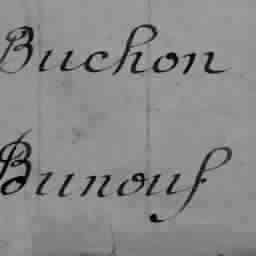 Buchon
Bunouf